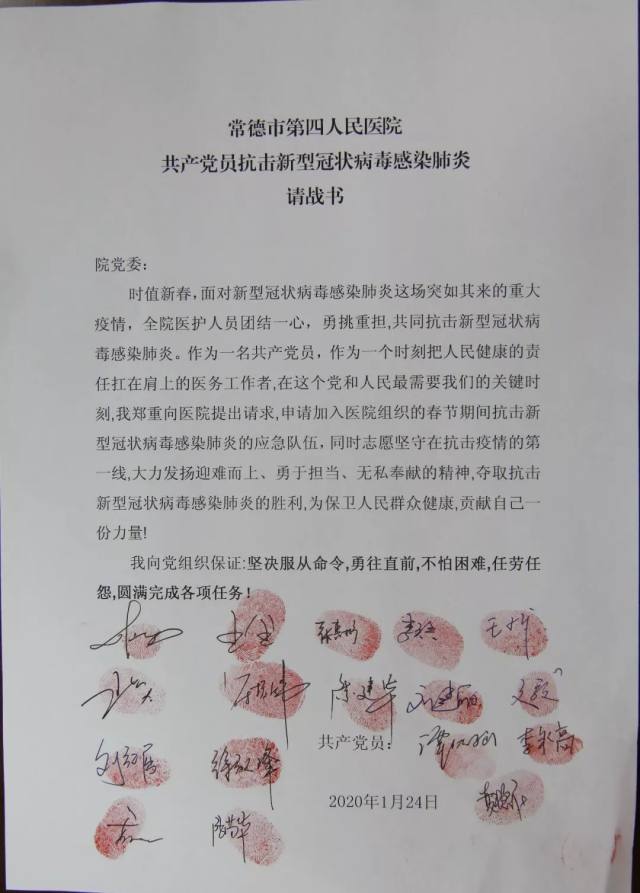 常德市第四人民医院
共产党员抗击新型冠状病毒感染肺炎
请战书
院党委：
时值新春，面对新型冠状病毒感染肺炎这场突如其来的重大
疫情，全院医护人员团结一心，勇挑重担,共同抗击新型冠状病
毒感染肺炎。作为一名共产党员，作为一个时刻把人民健康的责
任扛在肩上的医务工作者,在这个党和人民最需要我们的关键时
刻,我郑重向医院提出请求,申请加入医院组织的春节期间抗击新
型冠状病毒感染肺炎的应急队伍，同时志愿坚守在抗击疫情的第
一线,大力发扬迎难而上、勇于担当、无私奉献的精神,夺取抗击
新型冠状病毒感染肺炎的胜利,为保卫人民群众健康,贡献自己一
份力量!
我向党组织保证:坚决服从命令,勇往直前,不怕困难,任劳任
怨,圆满完成各项任务！
共产党员：
2020年1月24日